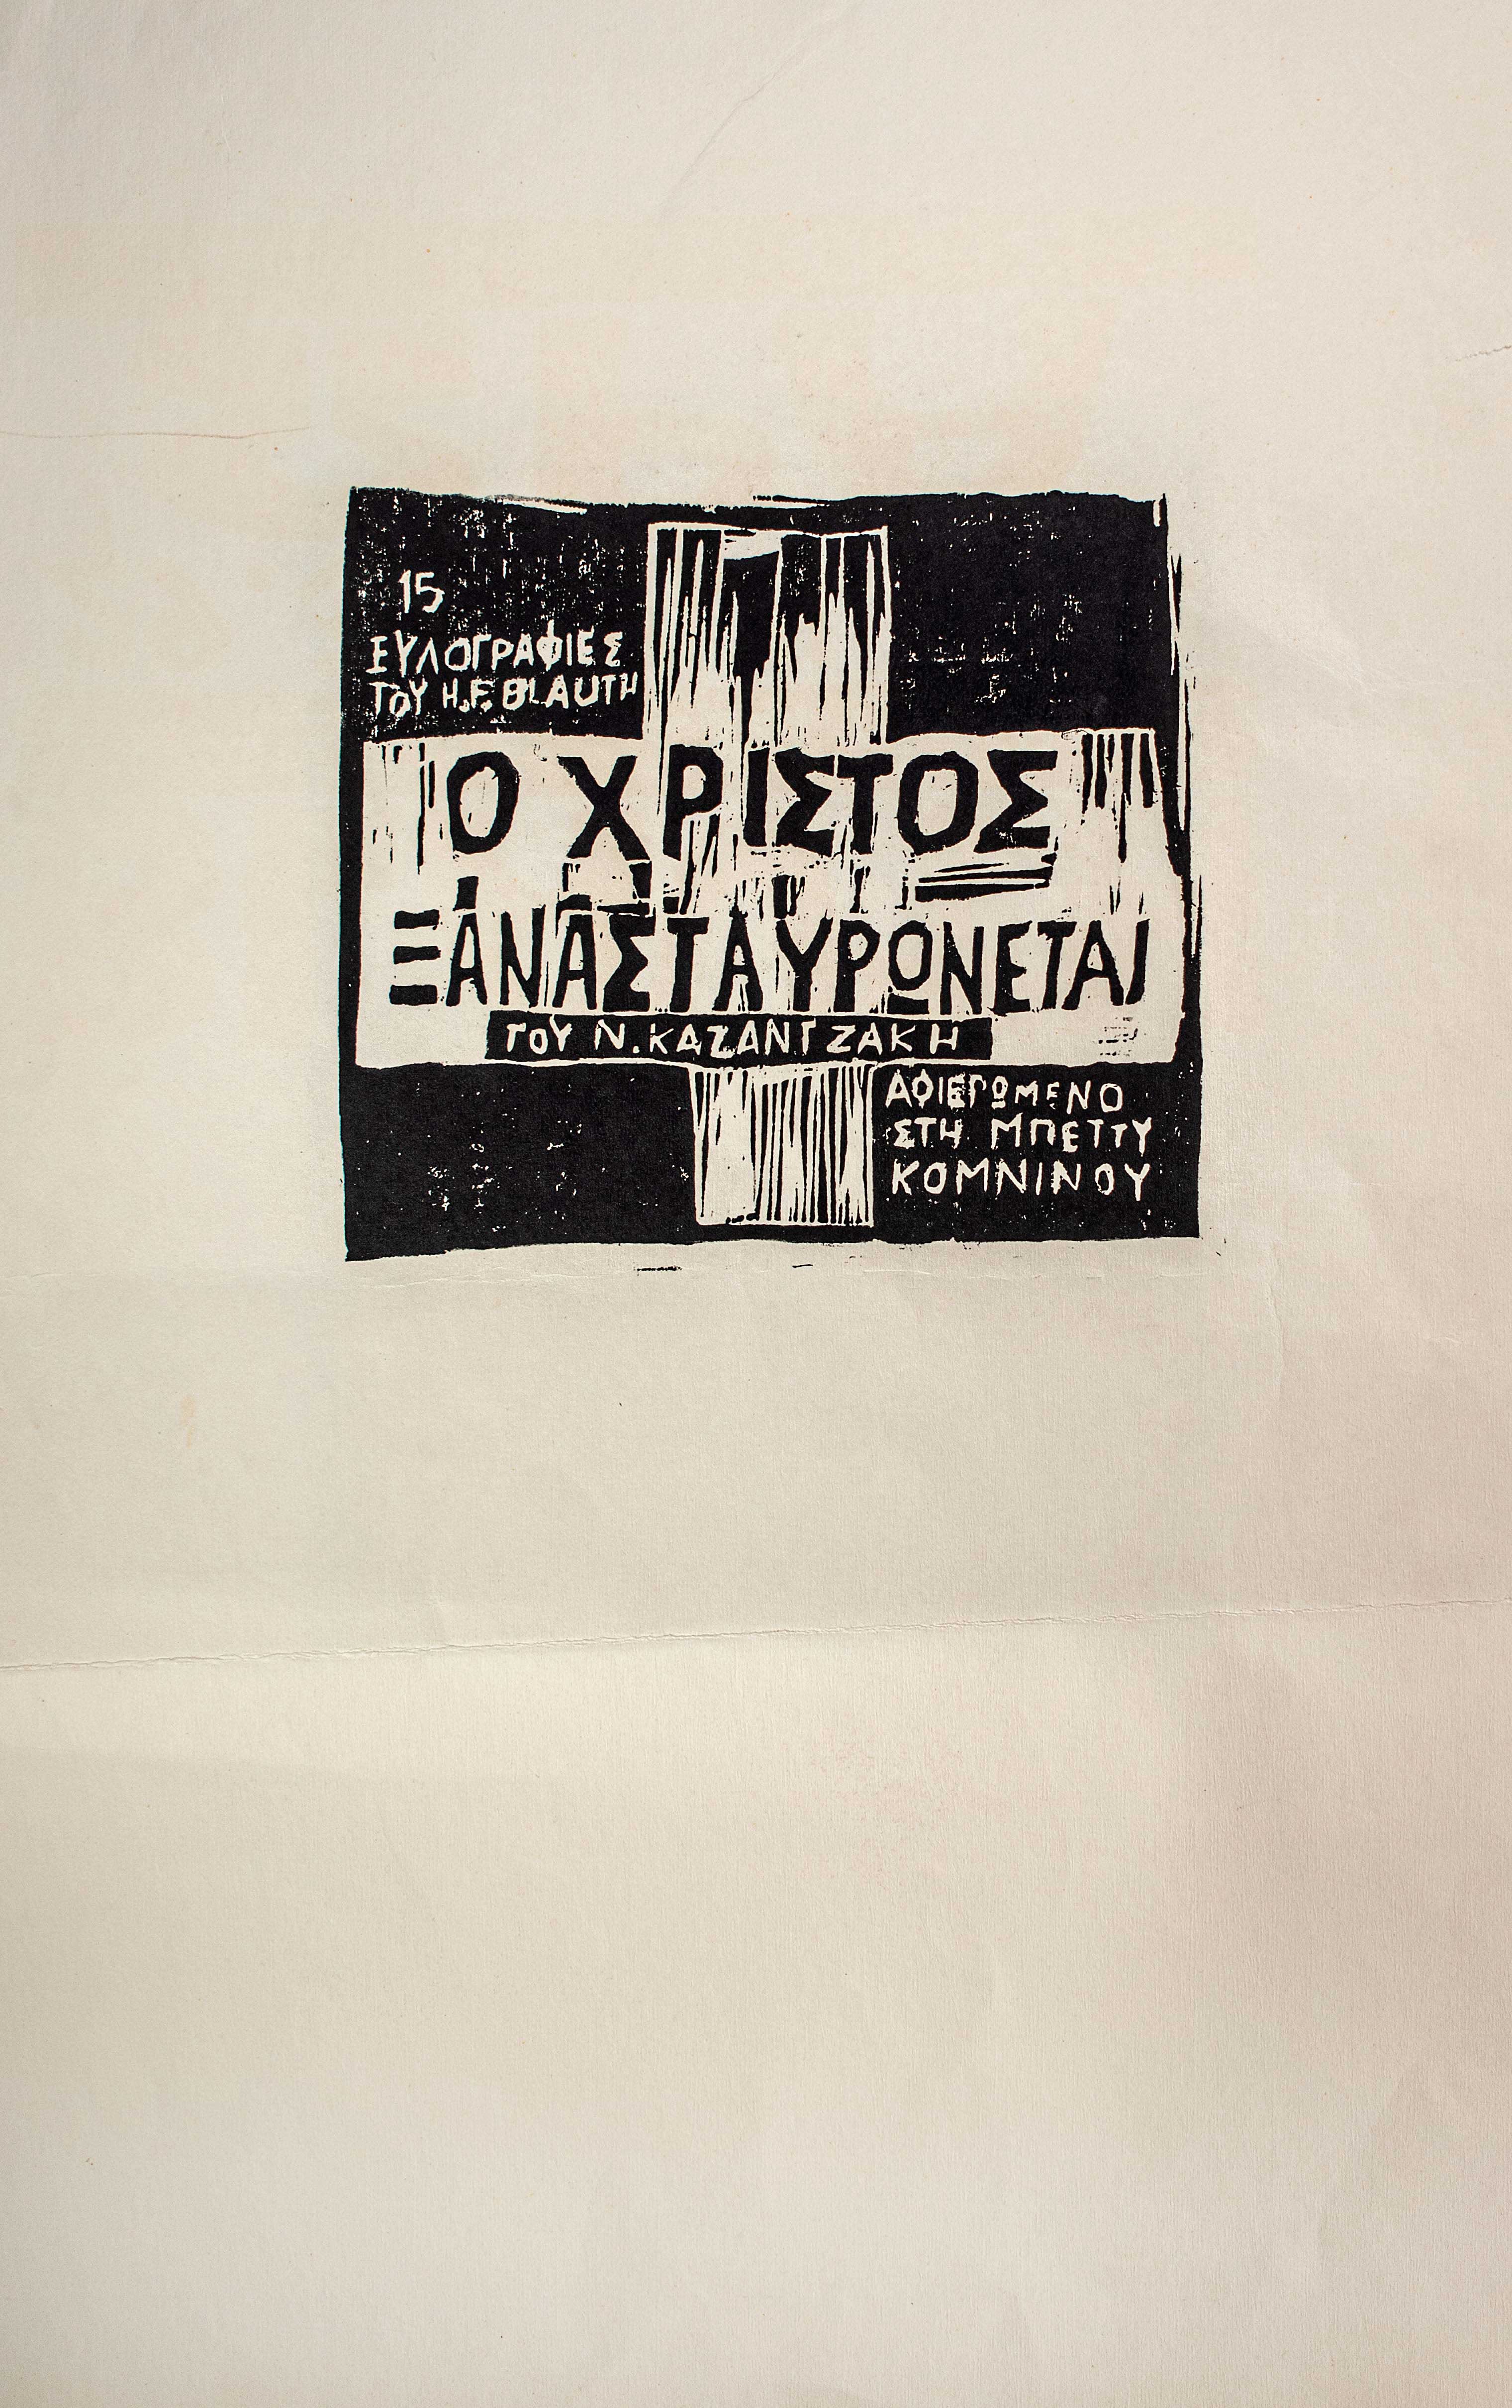 15
ΞΥΛΟΓΡΑΦΙΕΣ
ΤΟΥ H.F. BLAUTH
Ο ΧΡΙΣΤΟΣ
ΞΑΝΑΣΤΑΥΡΩΝΕΤΑΙ
ΤΟΥ Ν. ΚΑΖΑΝΤΖΑΚΗ
ΑΦΙΕΡΩΜΕΝΟ
ΣΤΗ ΜΠΕΤΤΥ
ΚΟΜΝΙΝΟΥ